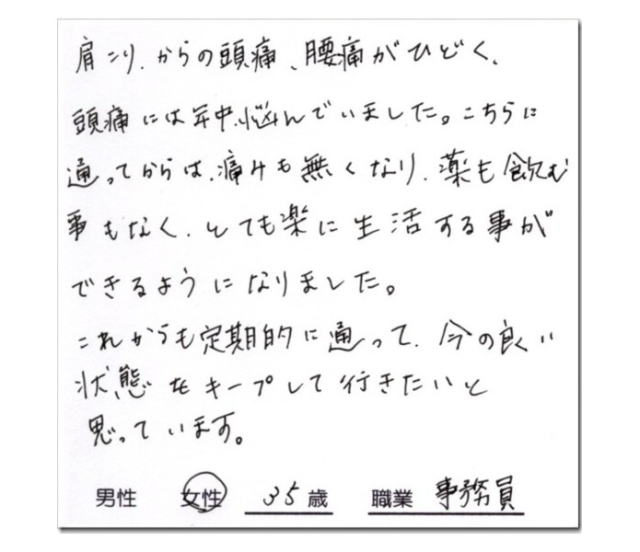 肩こり、からの頭痛、腰痛がひどく、
頭痛には年中、悩んでいました。こちらに
通ってからは、痛みも無くなり、薬も飲む
事もなく、とても楽に生活する事が
できるようになりました。
これからも定期的に通って、今の良い
状態をキープして行きたいと
思っています。
男性 女性 35歳 職業 事務員